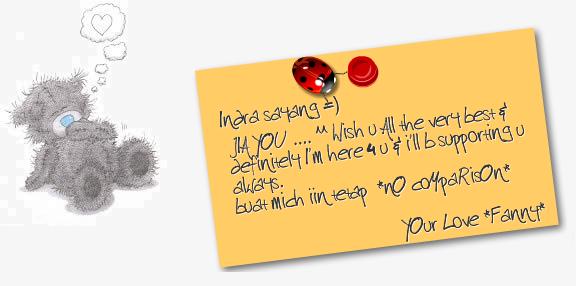 Indra sayang =)
JIA YOU .... ^^ Wish u All the very best &
definitely I'm here 4 u & i'll b supporting u
always.
buat mich iin tetap *nO coMpaRisOn*
YOur Love *Fanny*